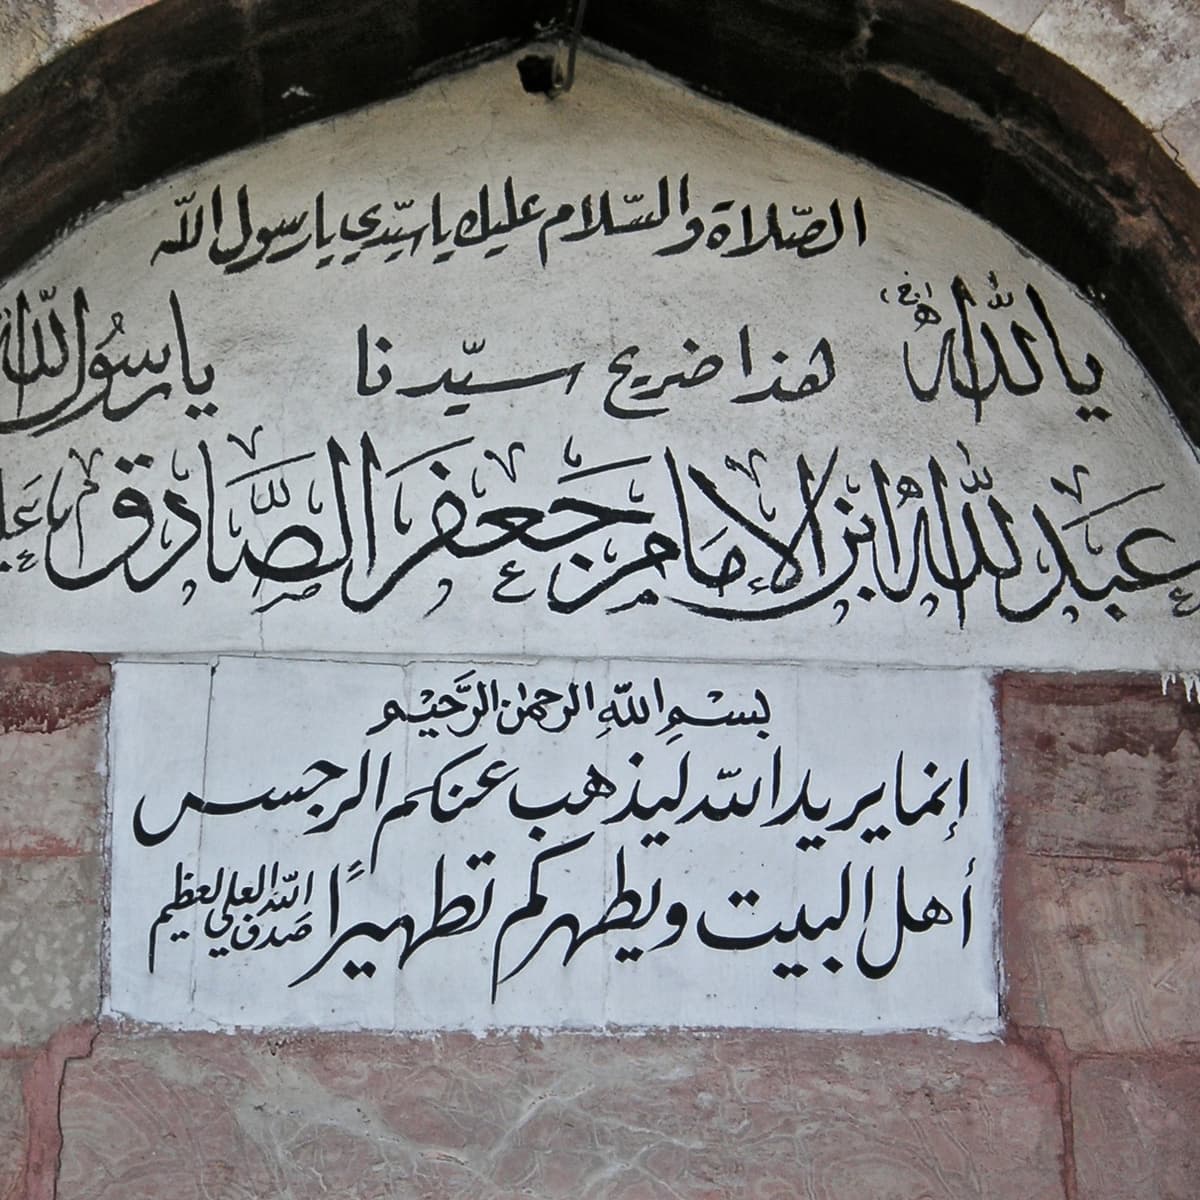 الصّلاة والسّلام عليك يا سيّدي يا رسول اللّه
يا اللّٰه هذا ضريح سيّدنا يا رسُول اللّٰه
عبَد اللّٰه ابن الإمَام جَعفَر الصَّادِق
بسْمِ اللّهِ الرحمٰن الرَّحيْم
إنما يريد اللّه ليذهب عنكم الرجس
أهل البيت ويطهركم تطهيرًا صَدق اللّه العلي العظيم